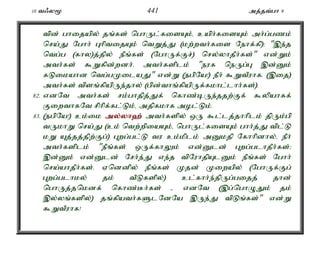 10 வ.லமு 441 அத்தவ்பா 9
வின் பாதையில் தங்கள் பொருட்களையும், உயிர்களையும் அர்ப்பணம்
செய்து போர் புரிவதையும் வெறுத்து (மற்றவர்களை நோக்கி): "இந்த
வெப்ப (கால)த்தில் நீங்கள் (போருக்குச்) செல்லாதீர்கள்" என்றும்
அவர்கள் கூறுகின்றனர். அவர்களிடம் "நரக நெருப்பு இன்னும்
கடுமையான வெப்பமுடையது" என்று (நபியே) நீர் கூறுவீராக. (இதை)
அவர்கள் விளங்கியிருந்தால் (பின்வாங்கியிருக்கமாட்டார்கள்).
82. எனவே அவர்கள் சம்பாதித்துக் கொண்டிருந்ததற்குக் கூலியாகக்
குறைவாகவே சிரிக்கட்டும், அதிகமாக அழட்டும்.
83. (நபியே) உம்மை அல்லாஹ் அவர்களில் ஒரு கூட்டத்தாரிடம் திரும்பி
வருமாறு செய்து (உம் வெற்றியையும், பொருட்களையும் பார்த்து விட்டு
மறு யுத்தத்திற்குப்) புறப்பட்டு வர உம்மிடம் அனுமதி கோரினால், நீர்
அவர்களிடம் "நீங்கள் ஒருக்காலும் என்னுடன் புறப்படாதீர்கள்;
இன்னும் என்னுடன் சேர்ந்து எந்த விரோதியுடனும் நீங்கள் போர்
செய்யாதீர்கள். ஏனெனில் நீங்கள் முதன் முறையில் (போருக்குப்
புறப்படாமல் தம் வீடுகளில்) உட்கார்ந்திருப்பதைத் தான்
பொருத்தமெனக் கொண்டீர்கள் - எனவே (இப்பொழுதும் தம்
இல்லங்களில்) தங்கியவர்களுடனேயே இருந்து விடுங்கள்" என்று
கூறுவீராக!